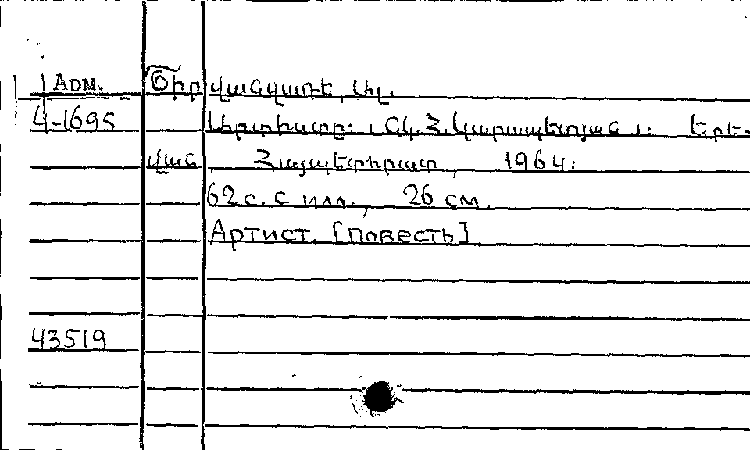 Арм. Շիրվանզադե, Ալ.
4-1695 Արտիստը: Նկ. Հ. Կարապետյան: Երե-
վան, Հայպետհրատ, 1964.
62 с. с илл., 26 см.
Артист. [повесть]
43519